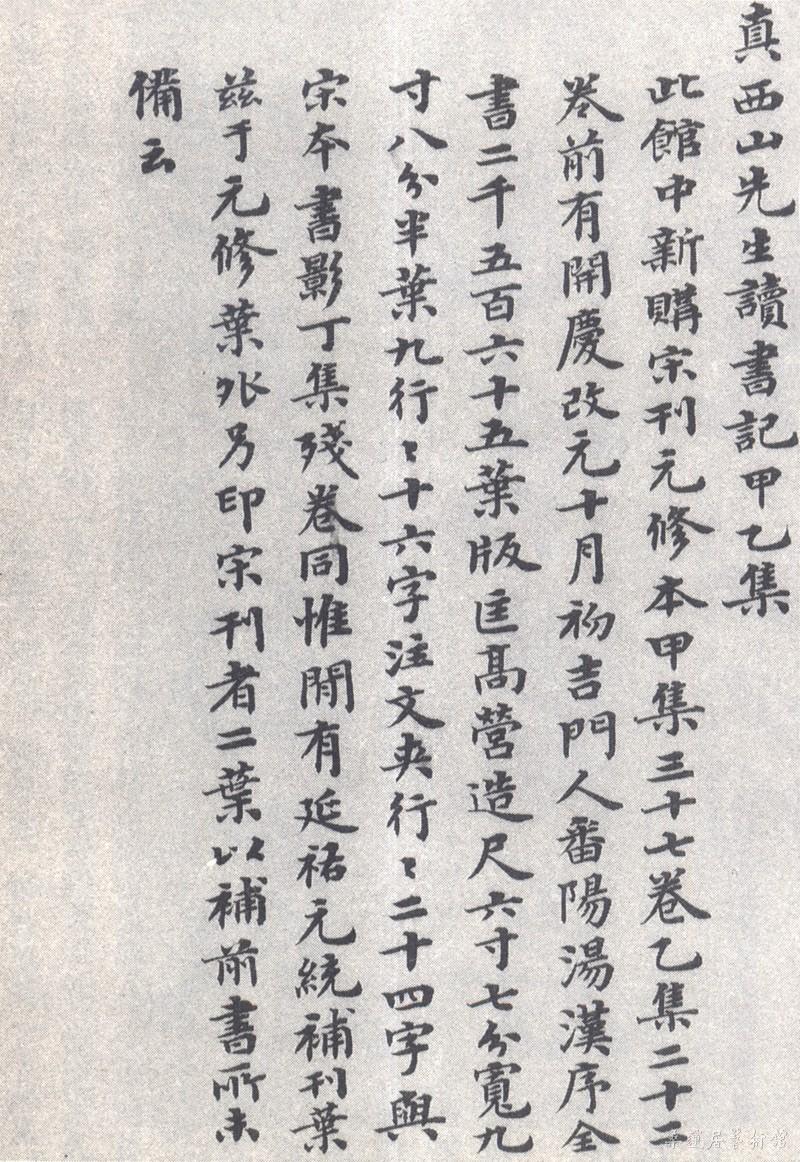 真西山先生讀書記甲乙集
此館中新購宋刊元修本甲集三十七卷乙集二十二
卷前有開慶改元十月初吉門人番陽湯漢序全
書二千五百六十五葉版匡高營造尺六寸七分寬九
寸八分半葉九行〻十六字注文夾行〻二十四字與
宋本書影丁集殘卷同惟間有延祐元統補刊葉
兹于元修葉外另印宋刊者二葉以補前書所未
備云